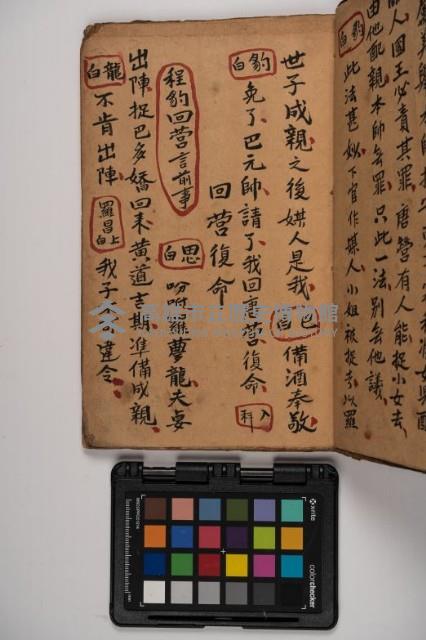 人國王必責其罪唐營有人能捉小女去
由他配親本帥無罪只此一法別無他議
豹白 此法甚妙下官作媒人小姐被捉去以羅
世子成親之後媒人是我 巴白 備酒奉敬
豹白 免了巴元帥請了我回唐營復命 入科
回營復命
程豹回營言前事 思白 吩咐羅夢龍夫妻
出陣捉巴多嬌回來黃道吉期準備成親
龍白 不肯出陣 羅昌上白 我子違令
高雄市立歷史博物館
x-rite
colorchecker